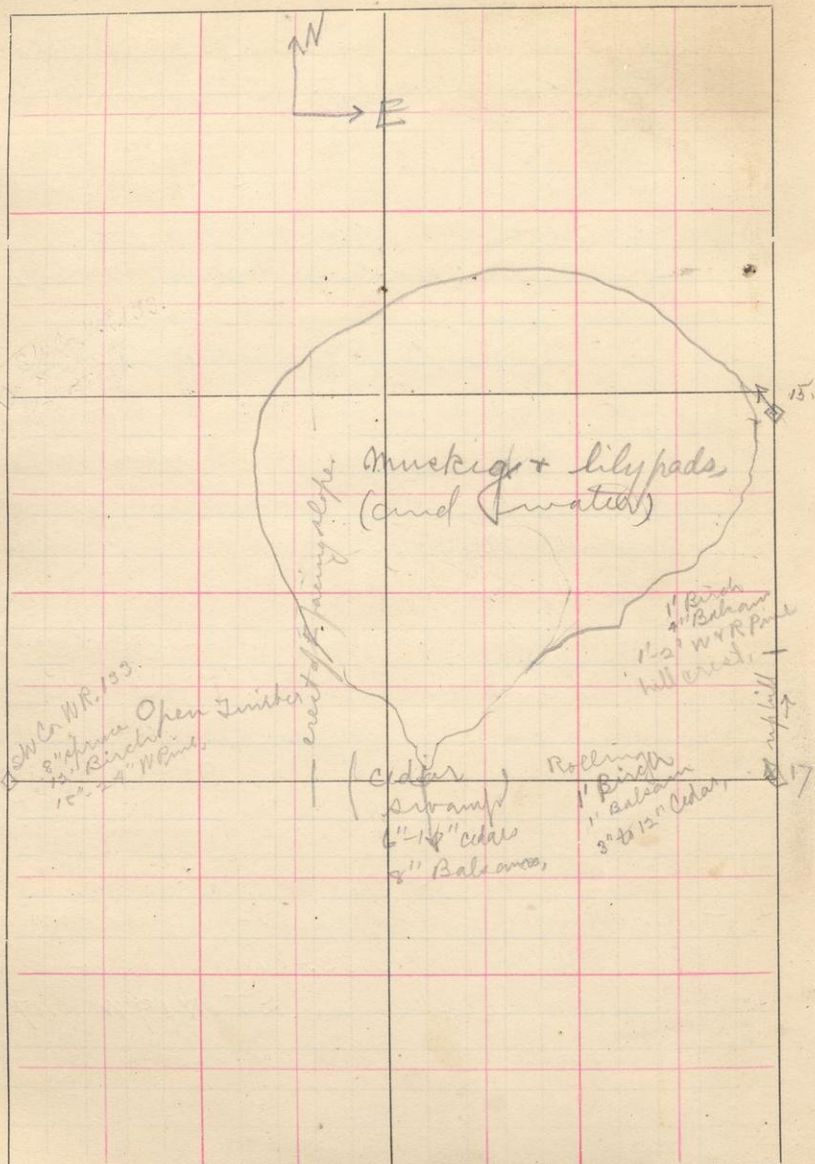 N
E
15.
Muskeg + lilypads
(and water)
crest of facing slope.
1' Birch
4" Balsam
1'-2' W & R Pine
hill crest,
uphill
SW Cor WR. 133.
8" spruce Open Timber
12" Birch
18"-24" W Pine,
(Cedar
swamp)
6"-18" cedars
8" Balsams,
Rolling
1' Birch
1' Balsam
3" to 12" Cedar,
17